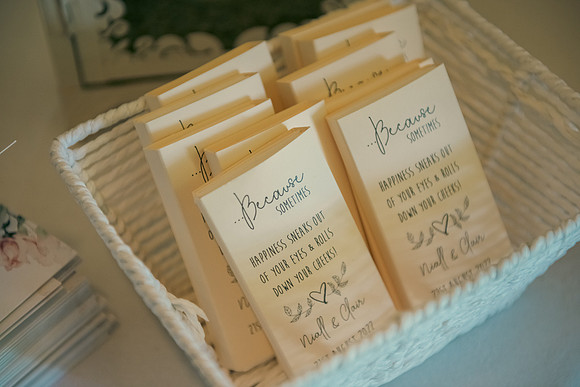 ...Because
SOMETIMES
HAPPINESS SNEAKS OUT
OF YOUR EYES & ROLLS
DOWN YOUR CHEEKS!
Niall & Clair
21st AUGUST 2022
...Because
SOMETIMES
HAPPINESS SNEAKS OUT
OF YOUR EYES & ROLLS
DOWN YOUR CHEEKS!
Niall & Clair
21st AUGUST 2022